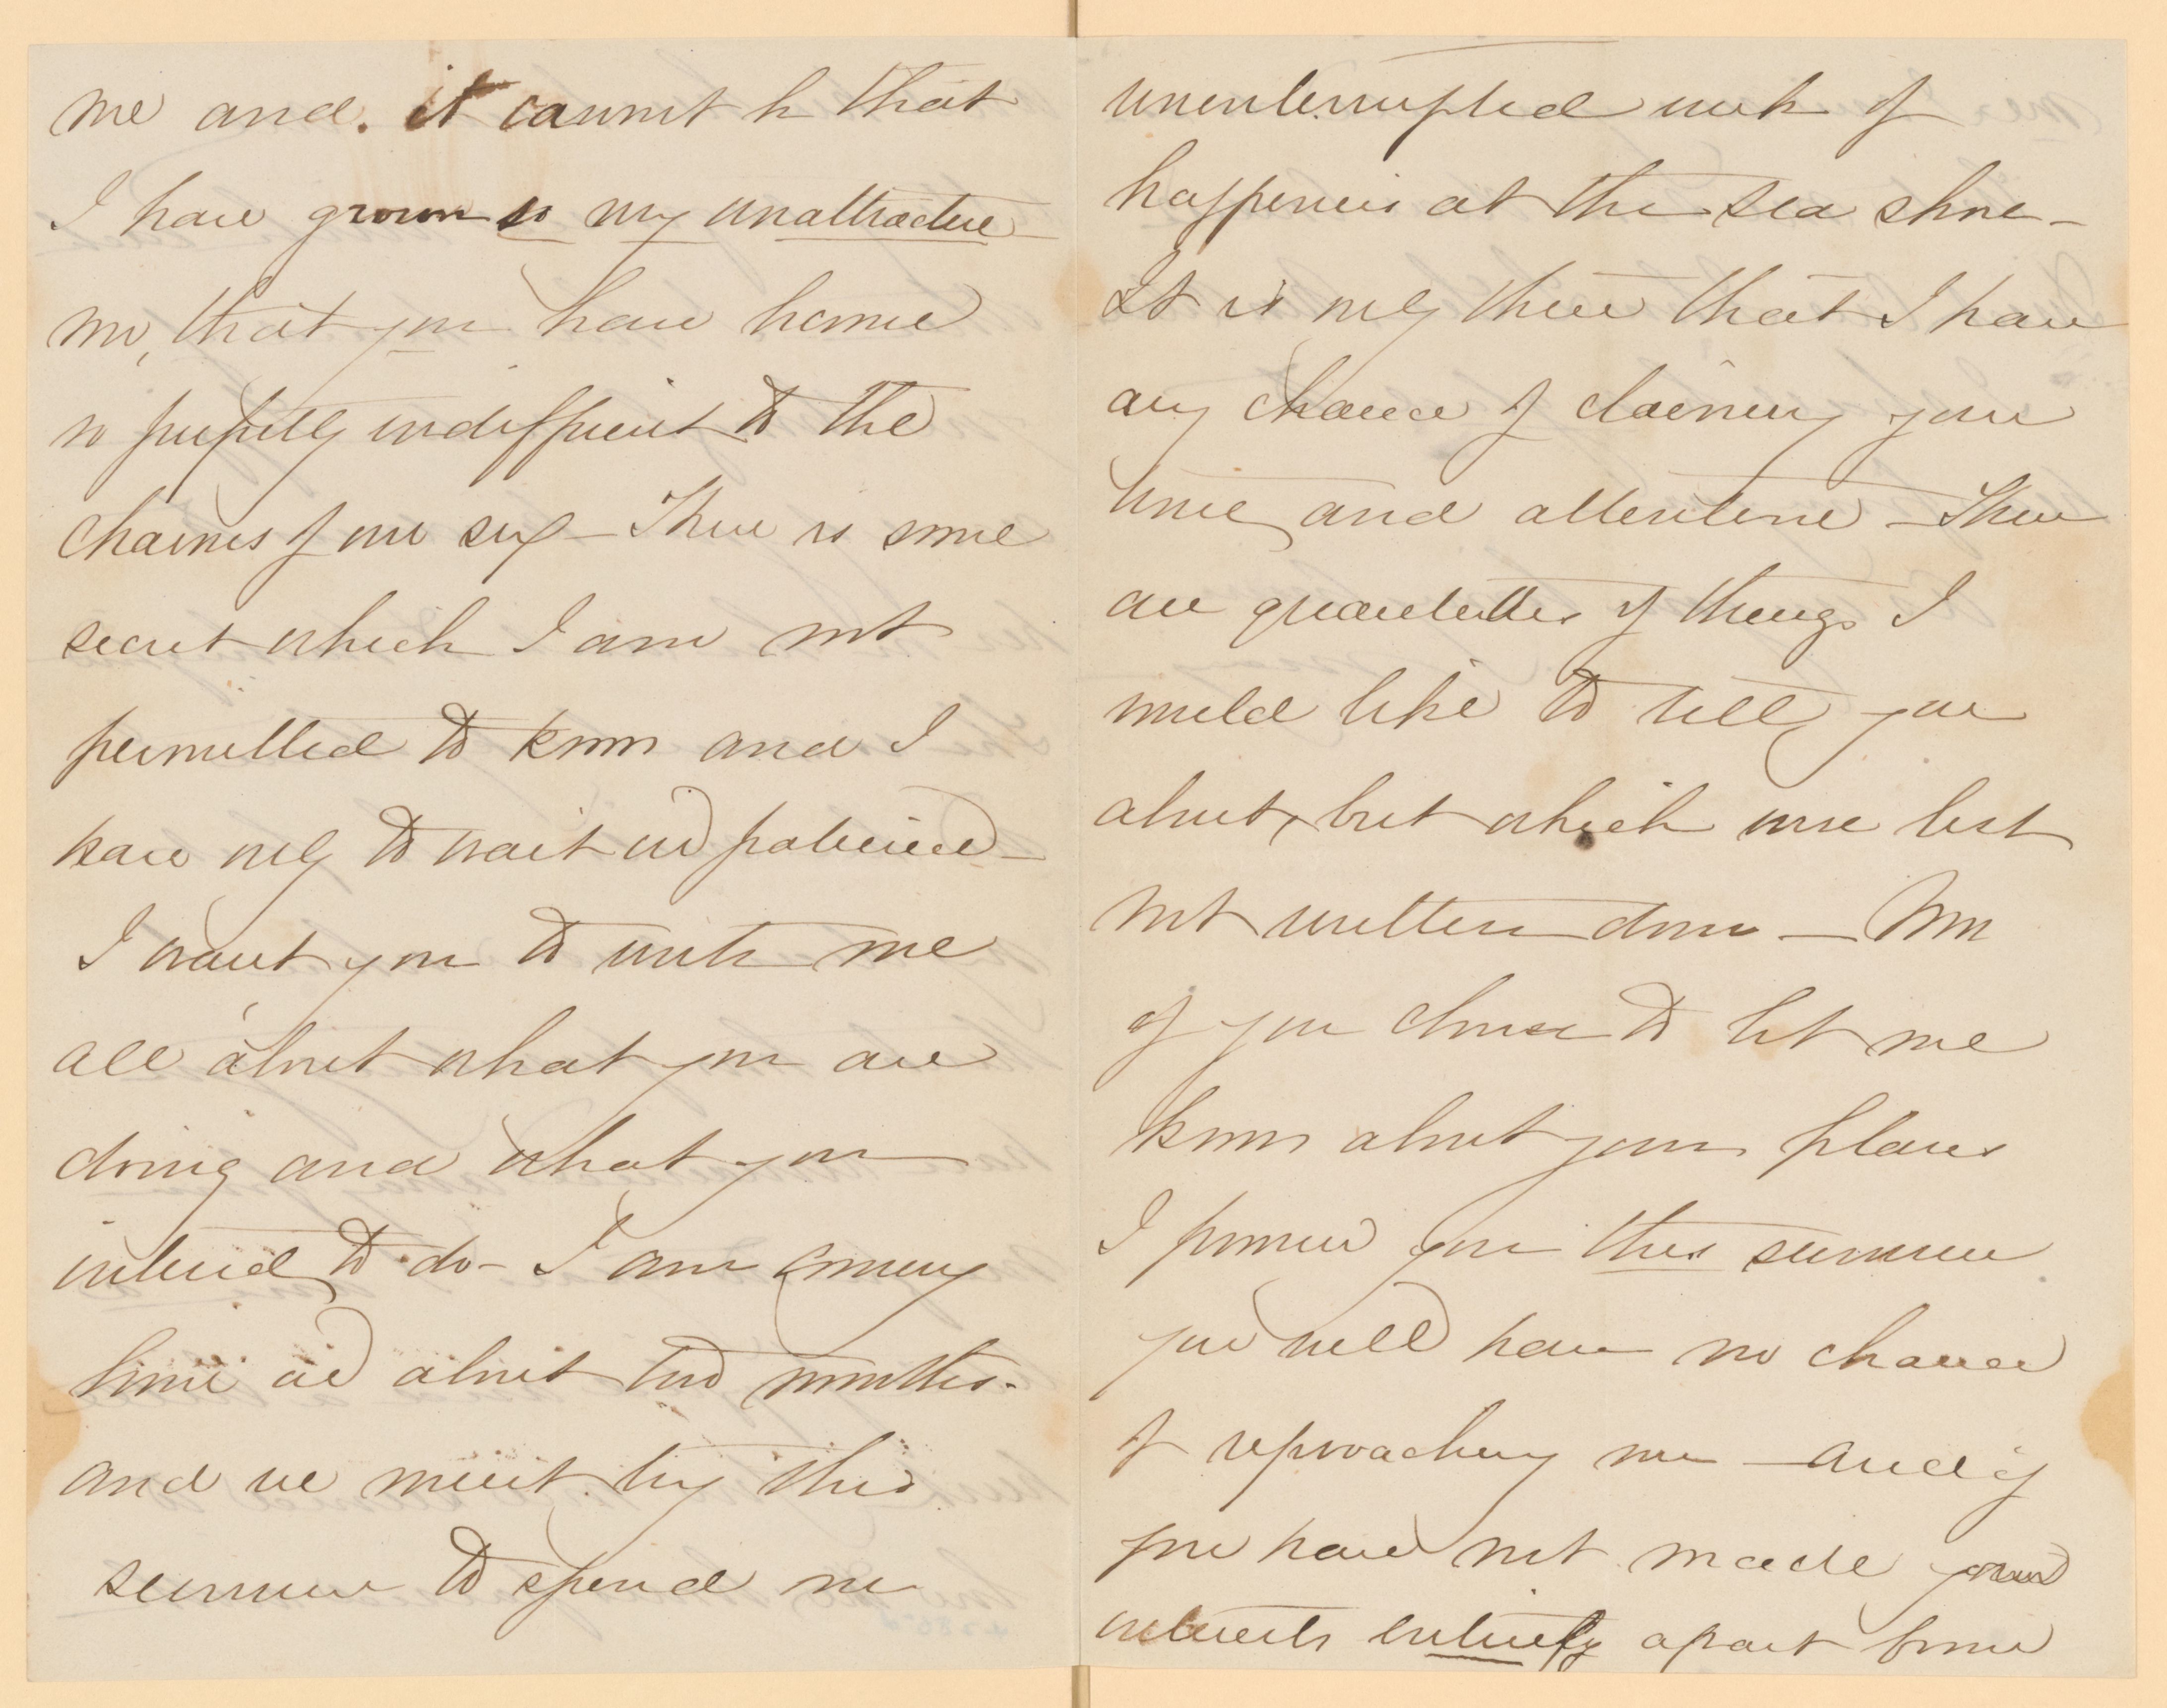 me and. it cannot be that
I have grown so very unattractive
nor, that you have become
so perfectly indifferent to the
charms of our sex – There is some
secret which I am not
permitted to know and I
have only to wait in patience –
I want you to write me
all about what you are
doing and what you
intend to do – I am coming
home in about two months.
and we must try this
summer to spend one
uninterrupted week of
happiness at the sea shore –
It is only there that I have
any chance of claiming your
time and attention – There
are quantities of things I
would like to tell you
about, but which were best
not written down – Now
if you choose to let me
know about your plans
I promise you this summer
you will have no chance
of reproaching me – and if
you have not made your
interests entirely apart from